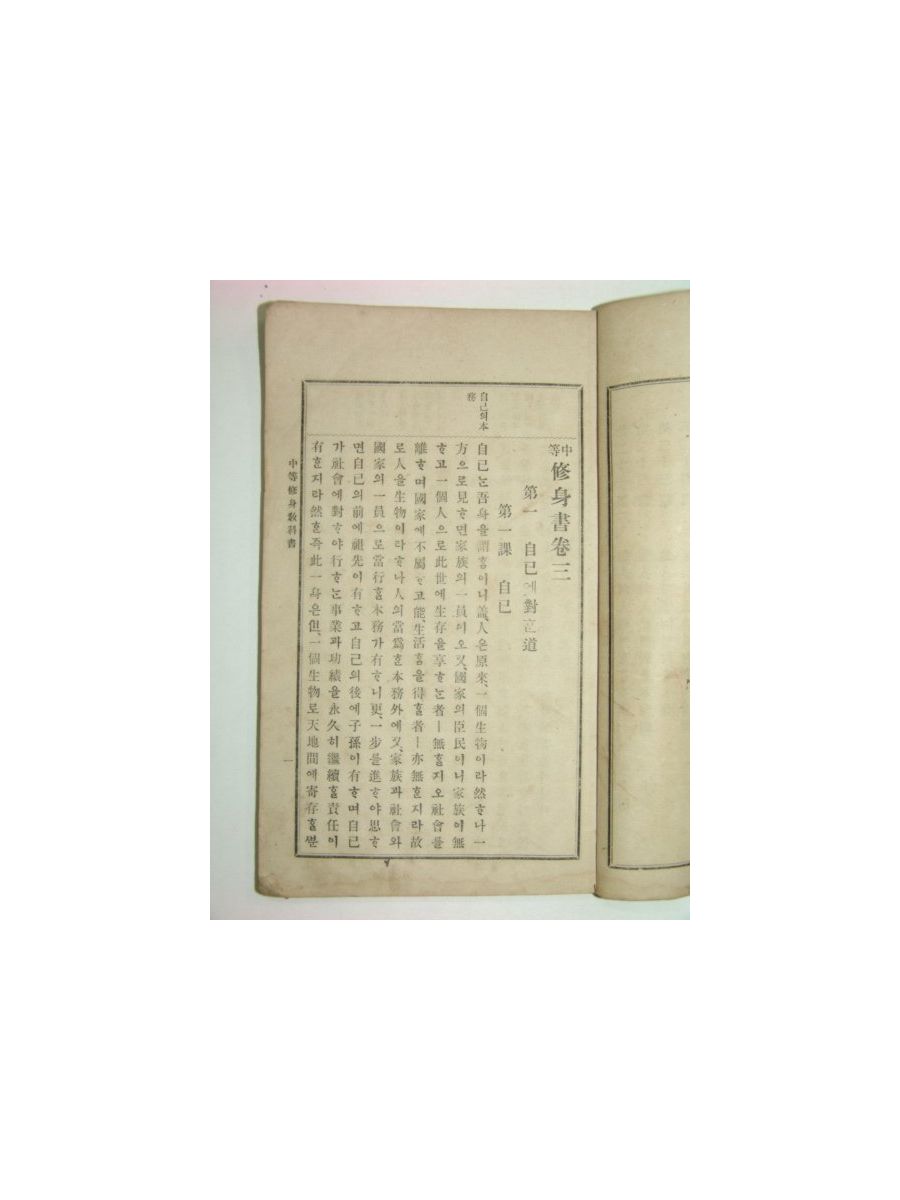 中等 修身書卷三
第一 自己에對한道
第一課 自己
自己의本
務
自己ᄂᆞᆫ吾身을謂홈이니盖、人은原來、一個生物이라然ᄒᆞ나一
方으로見ᄒᆞ면家族의一員이오又、國家의臣民이니家族이無
ᄒᆞ고一個人으로此世에生存을享ᄒᆞᄂᆞᆫ者ㅣ無ᄒᆞᆯ지오社會를
離ᄒᆞ며國家에不屬ᄒᆞ고能、生活홈을得ᄒᆞᆯ者ㅣ亦無ᄒᆞᆯ지라故
로人을生物이라ᄒᆞ나人의當爲ᄒᆞᆯ本務外에又、家族과社會와
國家의一員으로當行ᄒᆞᆯ本務가有ᄒᆞ니更、一步를進ᄒᆞ야思ᄒᆞ
면自己의前에祖先이有ᄒᆞ고自己의後에子孫이有ᄒᆞ며自己
가社會에對ᄒᆞ야行ᄒᆞᄂᆞᆫ事業과功績을永久히繼續ᄒᆞᆯ責任이
有ᄒᆞᆫ지라然ᄒᆞᆫ즉此一身은但、一個生物로天地間에寄存ᄒᆞᆯᄲᅮᆫ
中等修身敎科書
一